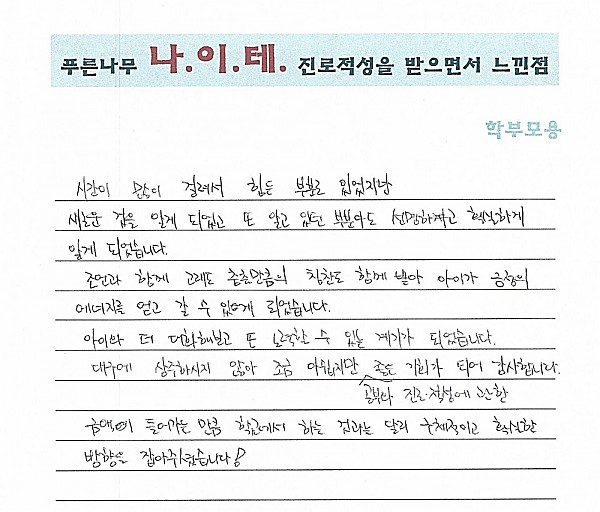 푸른나무 나.이.테. 진로적성을 받으면서 느낀점
학부모용
시간이 많이 걸려서 힘든 부분도 있었지만
새로운 것을 알게 되었고 또 알고 있던 부분이도 선명하고 확실하게
알게 되었습니다.
조언과 함께 고래도 춤출만큼의 칭찬도 함께 받아 아이가 긍정의
에너지를 얻고 갈 수 있게 되었습니다.
아이와 더 대화해보고 또 노력할 수 있는 계기가 되었습니다.
대구에 상주하시지 않아 조금 아쉽지만 좋은 기회가 되어 감사합니다.
공부나 진로·적성에 관한
금액이 들어가는 만큼 학교에서 하는 검사는 달리 구체적이고 확실한
방향을 잡아주셨습니다!